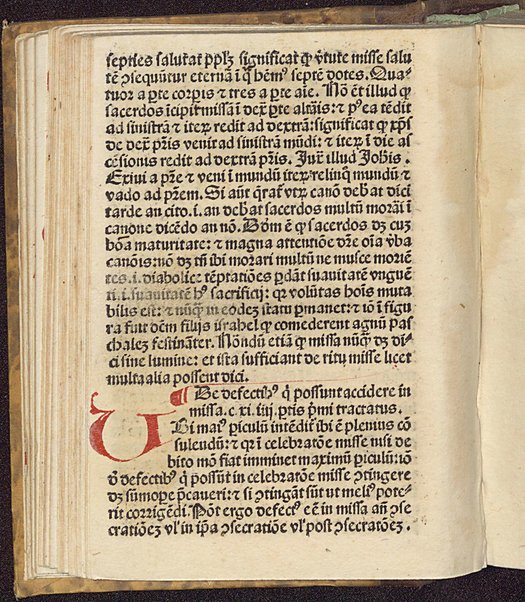 septies salutat̃ pp̃lʒ significat ꝙ v̓tute misse salu
tẽ ↄsequũtur eternã ĩ q̃ hẽmꝰ septẽ dotes. Qua⸗
tuor a p̱te corp̱is ⁊ tres a p̱te aĩe. Nõ ẽt illud ꝙ
sacerdos ĩcipit missã ĩ dex̃ p̱te altãis: ⁊ pꝰ ea tẽdit
ad sinistrã ⁊ iteꝝ redit ad dextrã: significat ꝙ xp̃s
de dex̃ p̃ris venit ad sinistrã mũdi: ⁊ iteꝝ ĩ die as
cẽsionis redit ad dextrã p̃ris. Jux̃ illud Joh̃is.
Exiui a p̃re ⁊ veni ĩ mundũ iteꝝ relinq̃ mundũ ⁊
vado ad p̃rem. Si aũt q̃rat̃ vtꝝ canõ deb̃at dici
tarde an cito .i. an deb̃at sacerdos multũ morãi ĩ
canone dicẽdo an nõ. Dõm ẽ ꝙ sacerdos dʒ cuʒ
bõa maturitate: ⁊ magna attentiõe dr̃e oĩa v̓ba
canõis: nõ dʒ tñ ibi morari multũ ne musce moriẽ
tes .i. diabolice tẽptatiões p̱dãt suauitatẽ vnguẽ
ti .i. suauitatẽ hꝰ sacrificij: qꝛ volũtas hoĩs muta
bilis est: ⁊ nũq̃ in eodeʒ statu p̱manet: ⁊ iõ ĩ figu
ra fuit dc̃m filijs israhel ꝙ comederent agnũ pas
chaleʒ festinãter. Nõndũ etiã ꝙ missa nũq̃ dʒ di⸗
ci sine lumine: et ista sufficiant de ritu misse licet
multa alia possent dici.
¶ De defectibꝰ q̃ possunt accidere in
missa. c. xi. iiij. p̱tis p̃mi tractatus.
Ubi maꝰ p̱iculũ intẽdit̃ ibi ẽ plenius cõ
sulendũ: ⁊ qꝛ ĩ celebratõe misse nisi de
bito mõ fiat imminet maximũ p̱iculũ: iõ
õ defectibꝰ q̃ possũt in celebratõe misse ↄtingere
dʒ sũmope p̃caueri: ⁊ si ↄtingãt sũt ut meliꝰ pote⸗
rit corrigẽdi. Põt ergo defectꝰ eẽ in missa añ ↄse
cratiõeʒ vl̓ in ip̃a ↄsecratiõe vl̓ post ↄsecratõeʒ.